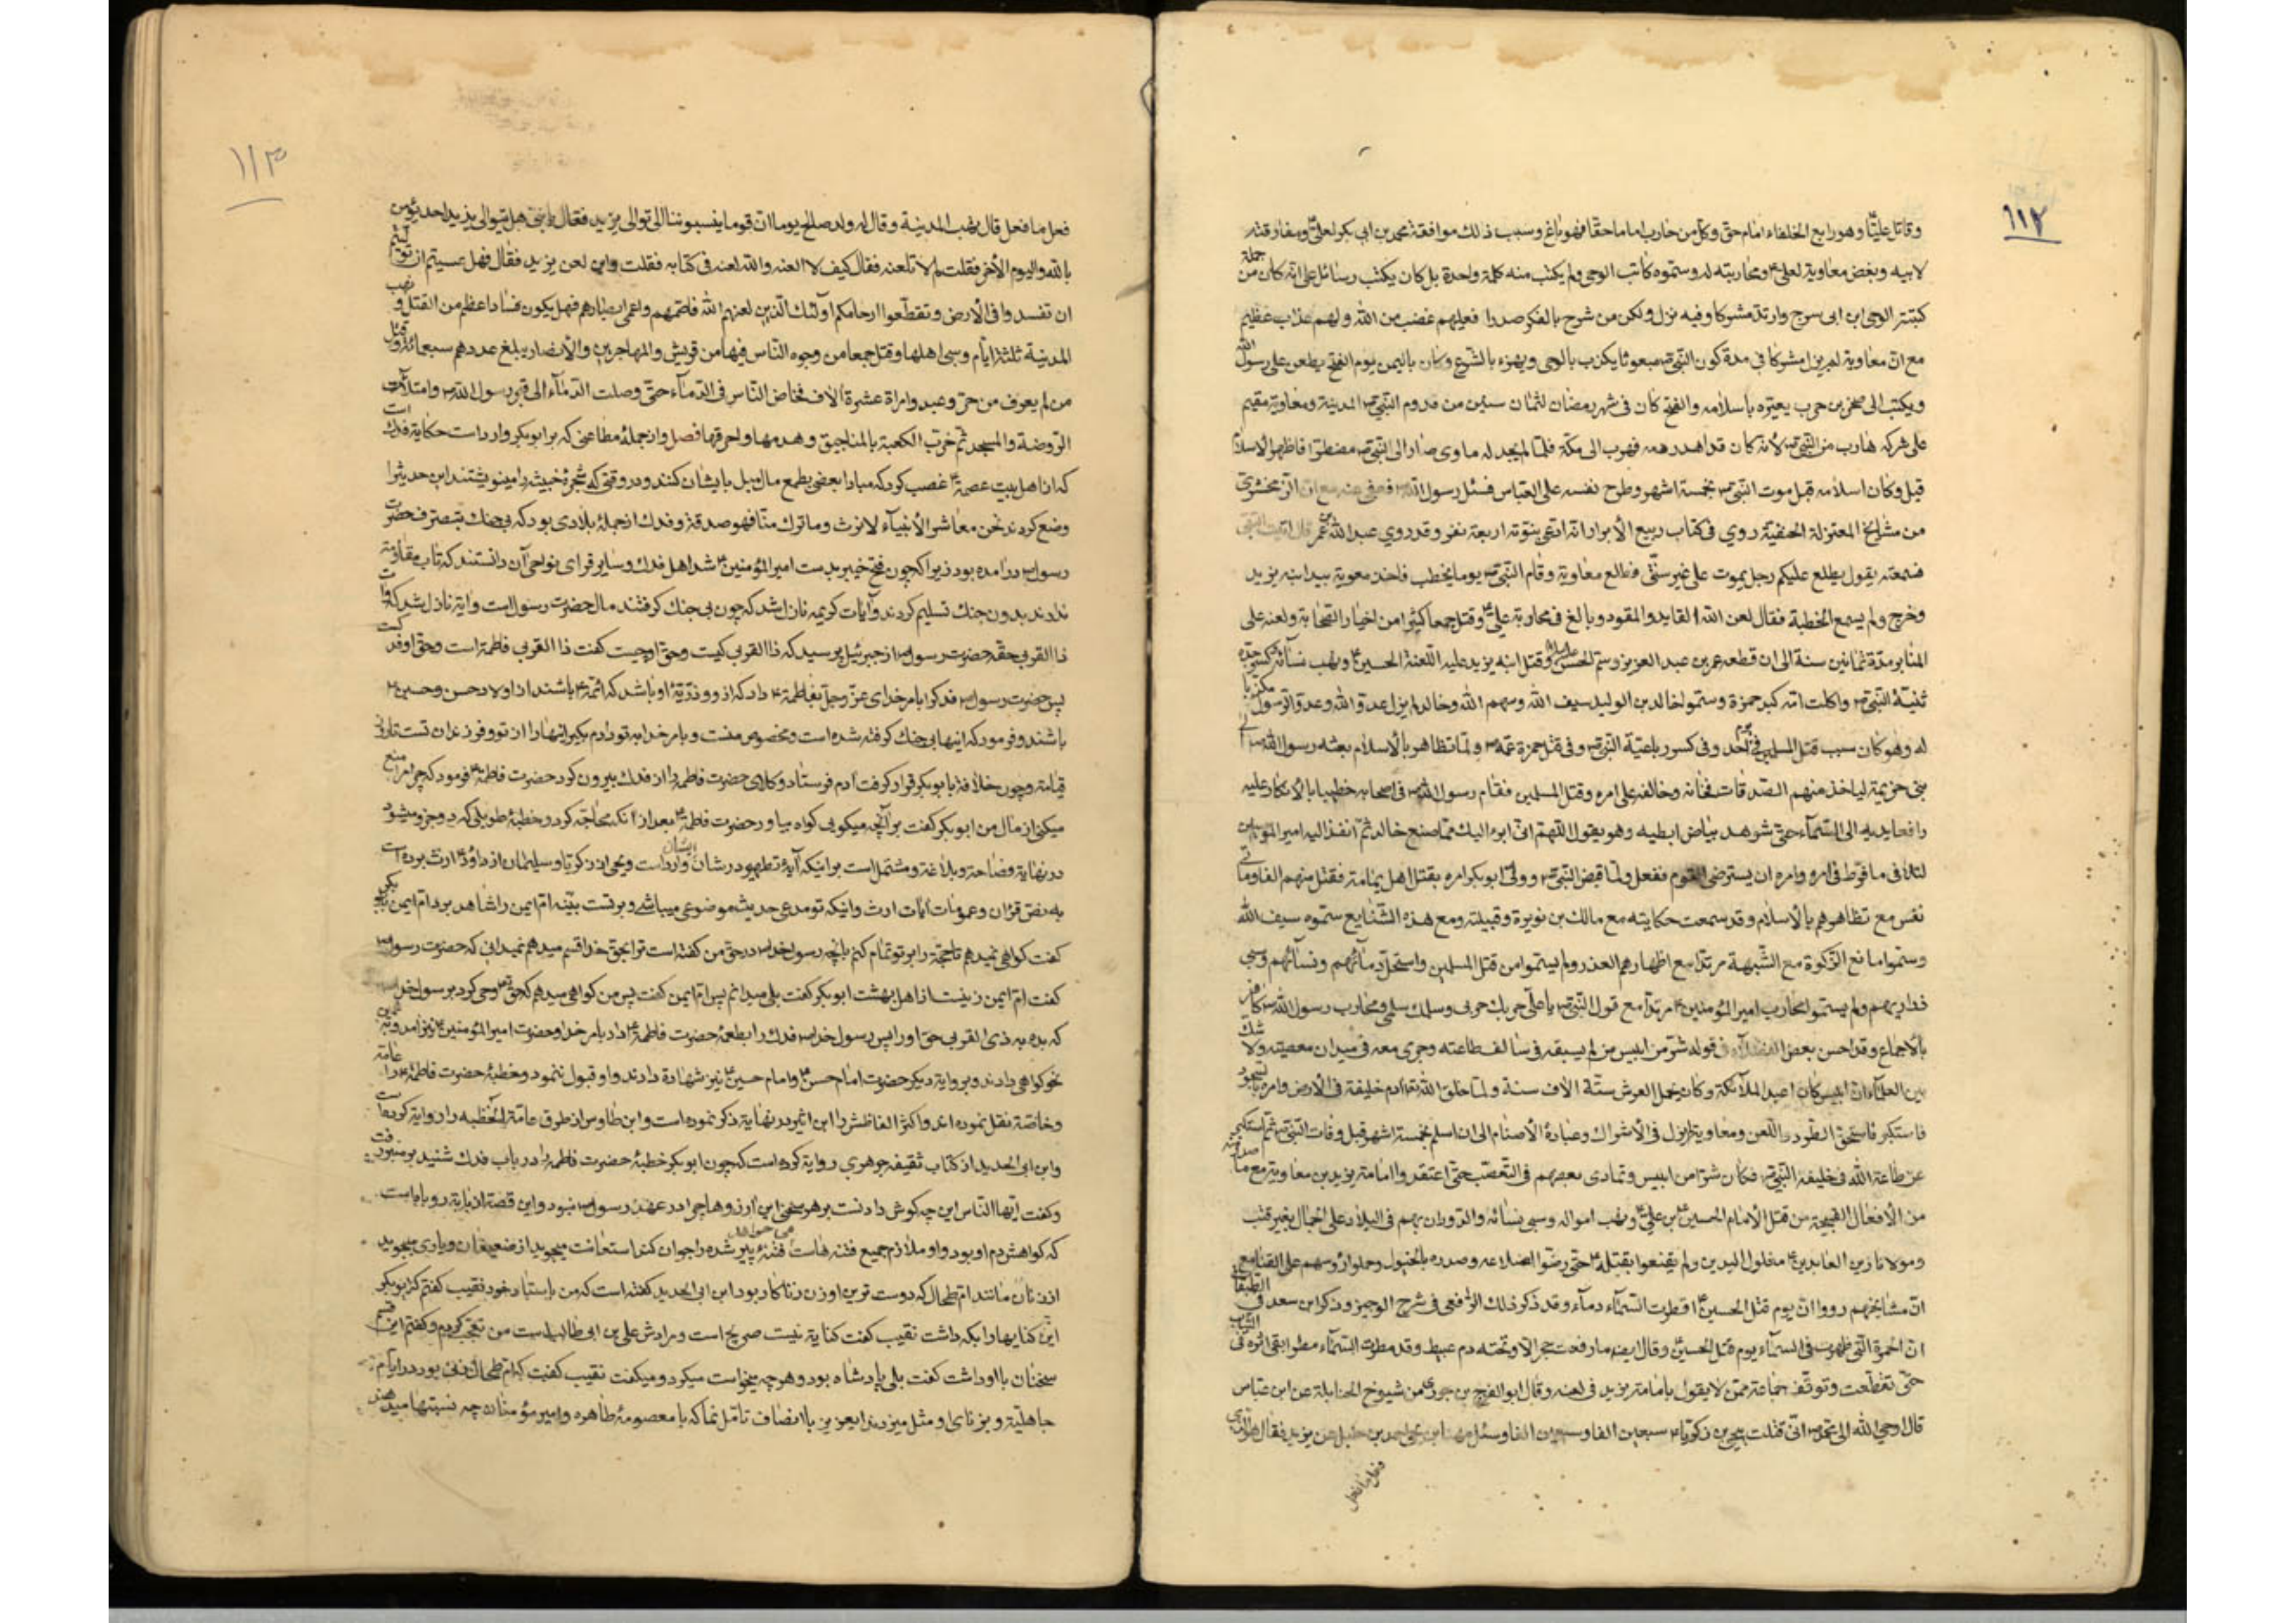 ١١٢
وقاتل عليّا وهو رابع الخلفاء امام حق وكل من حارب اماما حقا فهو باغ وسبب ذلك موافقة محمد بن ابي بكر لعلي ع ومفارقته
لابيه وبغض معاوية لعلي ع ومحاربته له وسمّوه كاتب الوحي ولم يكتب منه كلمة واحدة بل كان يكتب رسائل على انه كان من جملة
كتبة الوحي ابن ابي سرح وارتد مشركا وفيه نزل ولكن من شرح بالكفر صدرا فعليهم غضب من الله ولهم عذاب عظيم
مع ان معاوية لم يزل مشركا في مدة كون النبي ص مبعوثا يكذب بالوحي ويهزء بالشرع وكان باليمن يوم الفتح يطعن على رسول الله
ويكتب الى صخر بن حرب يعيّره باسلامه والفتح كان في شهر رمضان لثمان سنين من قدوم النبي ص المدينة ومعاوية مقيم
على شركه هارب من النبي ص لانه كان قد اهدر دمه فهرب الى مكة فلما لم يجد له ماوى صار الى النبي ص مضطرا فاظهر الاسلام
قبل وكان اسلامه قبل موت النبي ص بخمسة اشهر وطرح نفسه على العباس فسئل رسول الله ص فعفى عنه مع ان الزمخشري
من مشايخ المعتزلة الحنفية روي في كتاب ربيع الأبرار انه ادعى بنوته اربعة نفر وقد روي عبد الله بن عمر قال اتيت النبي
فسمعته يقول يطلع عليكم رجل يموت على غير سنتي فطلع معاوية وقام النبي ص يوما يخطب فاخذ معوية بيد ابنه يزيد
وخرج ولم يسمع الخطبة فقال لعن الله القايد والمقود وبالغ في محاربة علي ع وقتل جمعا كثيرا من اخيار الصحابة ولعنه على
المنابر مدة ثمانين سنة الى ان قطعه عمر بن عبد العزيز وسم الحسن عليه السلام وقتل ابنه يزيد عليه اللعنة الحسين ع ونهب نسائه وكسر جده
ثنية النبي ص واكلت امّه كبد حمزة وسمّوا خالد بن الوليد سيف الله وسهم الله وخالد لم يزل عدو الله وعدو الرسول مكذبا
له وهو كان سبب قتل المسلمين في يوم أحد وفي كسر رباعية النبي ص وفي قتل حمزة عمه ص ولمّا تظاهر بالاسلام بعثه رسول الله ص الى
بني خزيمة لياخذ منهم الصدقات فخانه وخالفه على امره وقتل المسلمين فقام رسول الله ص في اصحابه خطيبا بالانكار عليه
رافعا يديه الى السماء حتى شوهد بياض ابطيه وهو يقول اللهم انّي ابرء اليك مما صنع خالد ثم انفذ اليه امير المومنين
لتلافي ما فرّط في امره وامره ان يسترضى القوم ففعل ولما قبض النبي ص وولي ابو بكر امره بقتل اهل يمامة فقتل منهم الفا ومأتي
نفس مع تظاهرهم بالأسلام وقد سمعت حكايته مع مالك بن نويرة وقبيلته ومع هذه الشنايع سمّوه سيف الله
وسمّوا مانع الزكوة مع الشبهة مرتدا مع اظهارهم العذر ولم يسمّوا من قتل المسلمين واستحلّ دمائهم ونسائهم وسبي
ذراريهم ولم يسمّوا محارب امير المؤمنين ع مرتدا مع قول النبي ص يا علي حربك حربي وسلمك سلمي ومحارب رسول الله ص كافر
بالاجماع وقد احسن بعض الفضلاء في قوله شر من ابليس من لم يسبقه في سالف طاعته وجرى معه في ميدان معصيته ولا شك
بين العلماء ان ابليس كان اعبد الملائكة وكان يحمل العرش ستّة الاف سنة ولما خلق الله تعالى ادم خليفة في الأرض وامره بالسجود
فاستكبر فاستحق الطرد واللعن ومعاوية لم يزل في الاشراك وعبادة الأصنام الى ان اسلم بخمسة اشهر قبل وفات النبي ص ثم استكبر
عن طاعة الله في خليفة النبي ص فكان شرّا من ابليس وتمادى بعضهم في التعصب حتى اعتقدوا امامة يزيد بن معاوية مع ما صدر منه
من الأفعال القبيحة من قتل الأمام الحسين بن علي ع ونهب امواله وسبي نسائه والدوران بهم في البلاد على الجمال بغير قتب
ومولانا زين العابدين ع مغلول اليدين ولم يقنعوا بقتله ع حتى رضّوا اضلاعه وصدره بالخيول وحملوا رؤسهم على القنا مع
ان مشايخهم رووا ان يوم قتل الحسين ع اقطرت السماء دماء وقد ذكر ذلك الرافعي في شرح الوجيز وذكر ابن سعد في الطبقات
ان الحمرة التي ظهرت في السماء يوم قتل الحسين ع وقال ايضا ما رفعت حجر الا وتحته دم عبيط وقد مطرت السماء مطرا بقي اثره في الثياب
حتى تقطعت وتوقف جماعة ممن لا يقول بامامة يزيد في لعنه وقال ابو الفرج بن جوزي من شيوخ الحنابلة عن ابن عباس
قال اوحي الله الى محمد ص انّي قتلت بيحيى بن زكريا ع سبعين الفا وسبعين الفا وسئل مهنا بن يحيى احمد بن حنبل عن يزيد فقال هو الذي
فعل ما فعل
١١٣
فعل ما فعل قال نهب المدينة وقال له ولده صالح يوما ان قوما ينسبوننا الى توالي يزيد فقال يا بني هل يتوالى يزيد احد يؤمن
بالله واليوم الأخر فقلت لم لا تلعنه فقال كيف لا العنه والله لعنه في كتابه فقلت واين لعن يزيد فقال فهل عسيتم ان توليتم
ان تفسدوا في الأرض وتقطعوا ارحامكم اولئك الذين لعنهم الله فاصمهم واعمى ابصارهم فهل يكون فسادا اعظم من القتل ونهب
المدينة ثلثة ايّام وسبى اهلها وقتل جمعا من وجوه الناس فيها من قريش والمهاجرين والأنصار يبلغ عددهم سبعمائة وقتل
من لم يعرف من حرّ وعبد وامراة عشرة آلاف فخاض الناس في الدماء حتى وصلت الدماء الى قبر رسول الله ص وامتلأت
الروضة والمسجد ثم خرّب الكعبة بالمناجيق وهدمها واحرقها فصل واز جمله مطاعنى كه بر ابو بكر وارد است حكاية فدك است
كه از اهل بيت عصمة ع غصب كرد كه مبادا بعضى بطمع مال ميل بايشان كنند ودر وقتى كه شجرۀ خبيثه را مينوشتند اين حديث را
وضع كردند نحن معاشر الأنبياء لا نورث وما تركناه فهو صدقة وفدك از جملۀ بلادى بود كه بى جنك بتصرف حضرت
رسول ص در امده بود زيرا كه چون فتح خيبر بدست امير المؤمنين ع شد اهل فدك وساير قراى نواحى آن دانستند كه تاب مقاومة
ندارند بدون جنك تسليم كردند وآيات كريمه نازل شد كه چون بى جنك كرفتند مال حضرت رسول است وآية نازل شد كه وآت
ذا القربى حقه حضرت رسول ص از جبرئيل پرسيد كه ذا القربى كيست وحق او چيست كفت ذا القربى فاطمة است وحق او فدك است
پس حضرت رسول ص فدك را بامر خداى عز وجل بفاطمة ع داد كه از او وذرّيّۀ او باشد كه ائمّۀ ع باشند از اولاد حسن وحسين ع
باشند وفرمود كه اينها بى جنك كرفته شده است ومخصوص منست وبامر خدا به تو دادم بكير اينها را از تو وفرزندان تست تا روز
قيامة وچون خلافة با بو بكر قرار كرفت آدم فرستاد وكلاى حضرت فاطمه را از فدك بيرون كرد حضرت فاطمة ع فرمود كه چرا مرا منع
ميكنى از مال من ابو بكر كفت بر آنچه ميكويى كواه بياور حضرت فاطمة ع بعد از انكه محاجّه كرد وخطبۀ طويلى كه دو جزو ميشود
در نهاية فصاحة وبلاغة ومشتمل است بر اينكه آيۀ تطهير در شان ايشان وارد است ويحيى از زكريا وسليمان از داود ع ارث برده است
به نص قرآن وعمومات آيات ارث واينكه تو مدعى حديث موضوعى ميباشى وبر تست بيّنه امّ ايمن را شاهد برد امّ ايمن
كفت كواهى نميدهم تا حجّة را بر تو تمام كنم بانچه رسول خدا ص در حق من كفته است ترا بحق خدا قسم ميدهم نميدانى كه حضرت رسول ص
كفت امّ ايمن زنيست از اهل بهشت ابو بكر كفت بلى ميدانم پس امّ ايمن كفت پس من كواهى ميدهم كه حق تع وحى كرد بر رسول خدا
كه بده به ذى القربى حق او را پس رسول خدا ص فدك را بطعمۀ حضرت فاطمة ع داد بامر خدا وحضرت امير المؤمنين ع نيز آمد وبه همين
نحو كواهى دادند وبرواية ديكر حضرت امام حسن ع وامام حسين ع نيز شهادة دادند واو قبول ننمود وخطبۀ حضرت فاطمة ع را عامّة
وخاصّة نقل نموده اند واكثر الفاظش را ابن اثير در نهاية ذكر نموده است وابن طاوس از طرق عامّة الخطبه را رواية كرده است
وابن ابى الحديد از كتاب ثقيفۀ جوهري رواية كرده است كه چون ابو بكر خطبۀ حضرت فاطمه را در باب فدك شنيد بر منبر رفت
وكفت ايّها الناس اين چه كوش دادنست بر هر سخنى اين آرزوها چرا در عهد رسول ص نبود واين قصّۀ از بابة روباه است
كه كواهش دم او بود واو ملازم جميع فتنه هاست مى خواهد فتنۀ پير شده را جوان كند استعانت ميجويد از ضعيفان ويارى ميجويد
از زنان مانند امّ طحال كه دوست ترين او زن زناكار بود ابن ابى الحديد كفته است كه من باستاد خود نقيب كفتم كه ابو بكر
اين كنايها را بكه داشت نقيب كفت كناية نيست صريح است ومرادش على بن ابى طالب است من تعجب كردم وكفتم اين قسم
سخنان با او داشت كفت بلى پادشاه بود وهر چه ميخواست ميكرد وميكفت نقيب كفت كه امّ طحال زنى بود در ايّام
جاهلية وبزناى او مثل ميزدند ايعزيز با انصاف تامّل نما كه با معصومۀ طاهره وامير مؤمنان چه نسبتها ميدهند